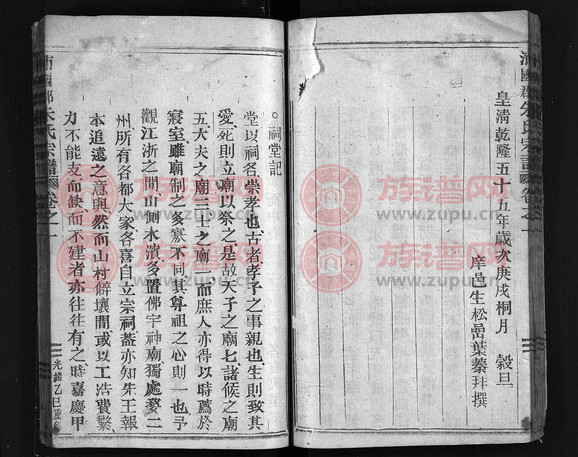 皇清乾隆五十五年歲次庚戌桐月 穀旦
庠邑生松嵒葉蓁拜撰
沛國郡朱氏宗譜卷之一
祠堂記
堂以祠名崇孝也古者孝子之事親也生則致其
愛死則立廟以祭之是故天子之廟七諸候之廟
五大夫之廟三士之廟一而庶人亦得以時薦於
寢室雖廟制之多寡不同其尊祖之心則一也予
觀江浙之間山側水濱多置佛宇神廟獨處婺二
州所有各都大家各喜自立宗祠蓋亦知先王報
本追遠之意與然而山村僻壤間或以工浩費繁
力不能支而缺而不建者亦往往有之時嘉慶甲
沛國郡朱氏宗譜卷之一
光緒乙巳重修
族谱网
www.zupu.cn